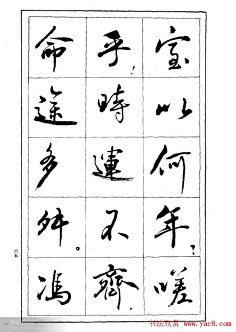 室以何年？嗟
乎！時運不齊，
命途多舛。馮
书法欣赏 www.yac8.com